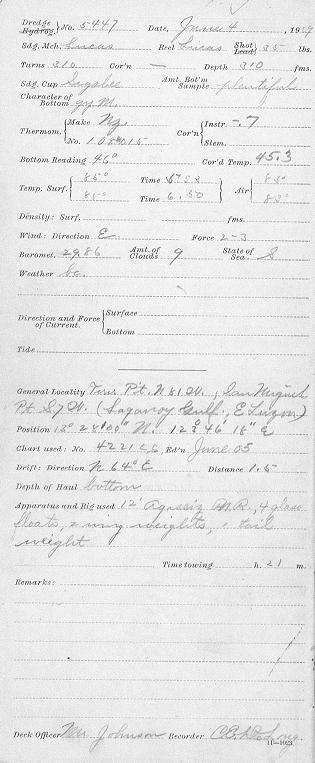 Dredge
Hydrog. } No. 5447 Date, June 4, 1909
Sdg. Mch. Lucas Reel Lucas Shot Lead 35 lbs.
Turns 310 Cor'n — Depth 310 fms.
Sdg. Cup Sigsbee Amt. Bot'm Sample plentiful
Character of Bottom gy M.
Thermom. { Make Ng.
No. 108015 Cor'n { Instr. -.7
Stem.
Bottom Reading 46° Cor'd Temp. 45.3
Temp. Surf. { 85° Time 5.53 } Air { 83°
85° Time 6.50 83°
Density: Surf. fms.
Wind: Direction E Force 2-3
Baromet. 29.86 Amt. of Clouds 9 State of Sea S
Weather bc.
Direction and Force of Current. { Surface
Bottom
Tide
General Locality Pt. N 81 W., San Miguel
Pt. S 7 W. (Lagonoy Gulf, E Luzon)
Position 13° 28' 00" N. 123° 46' 18" E
Chart used: No. 4221 CS, Ed'n June 05
Drift: Direction N 64° E Distance 1.5
Depth of Haul bottom
Apparatus and Rig used 12' Agassiz, 4 glass
floats, 2 wing weights, tail
weight
Time towing h. 21 m.
Remarks:
Deck Officer Mr. Johnson Recorder
11—1023